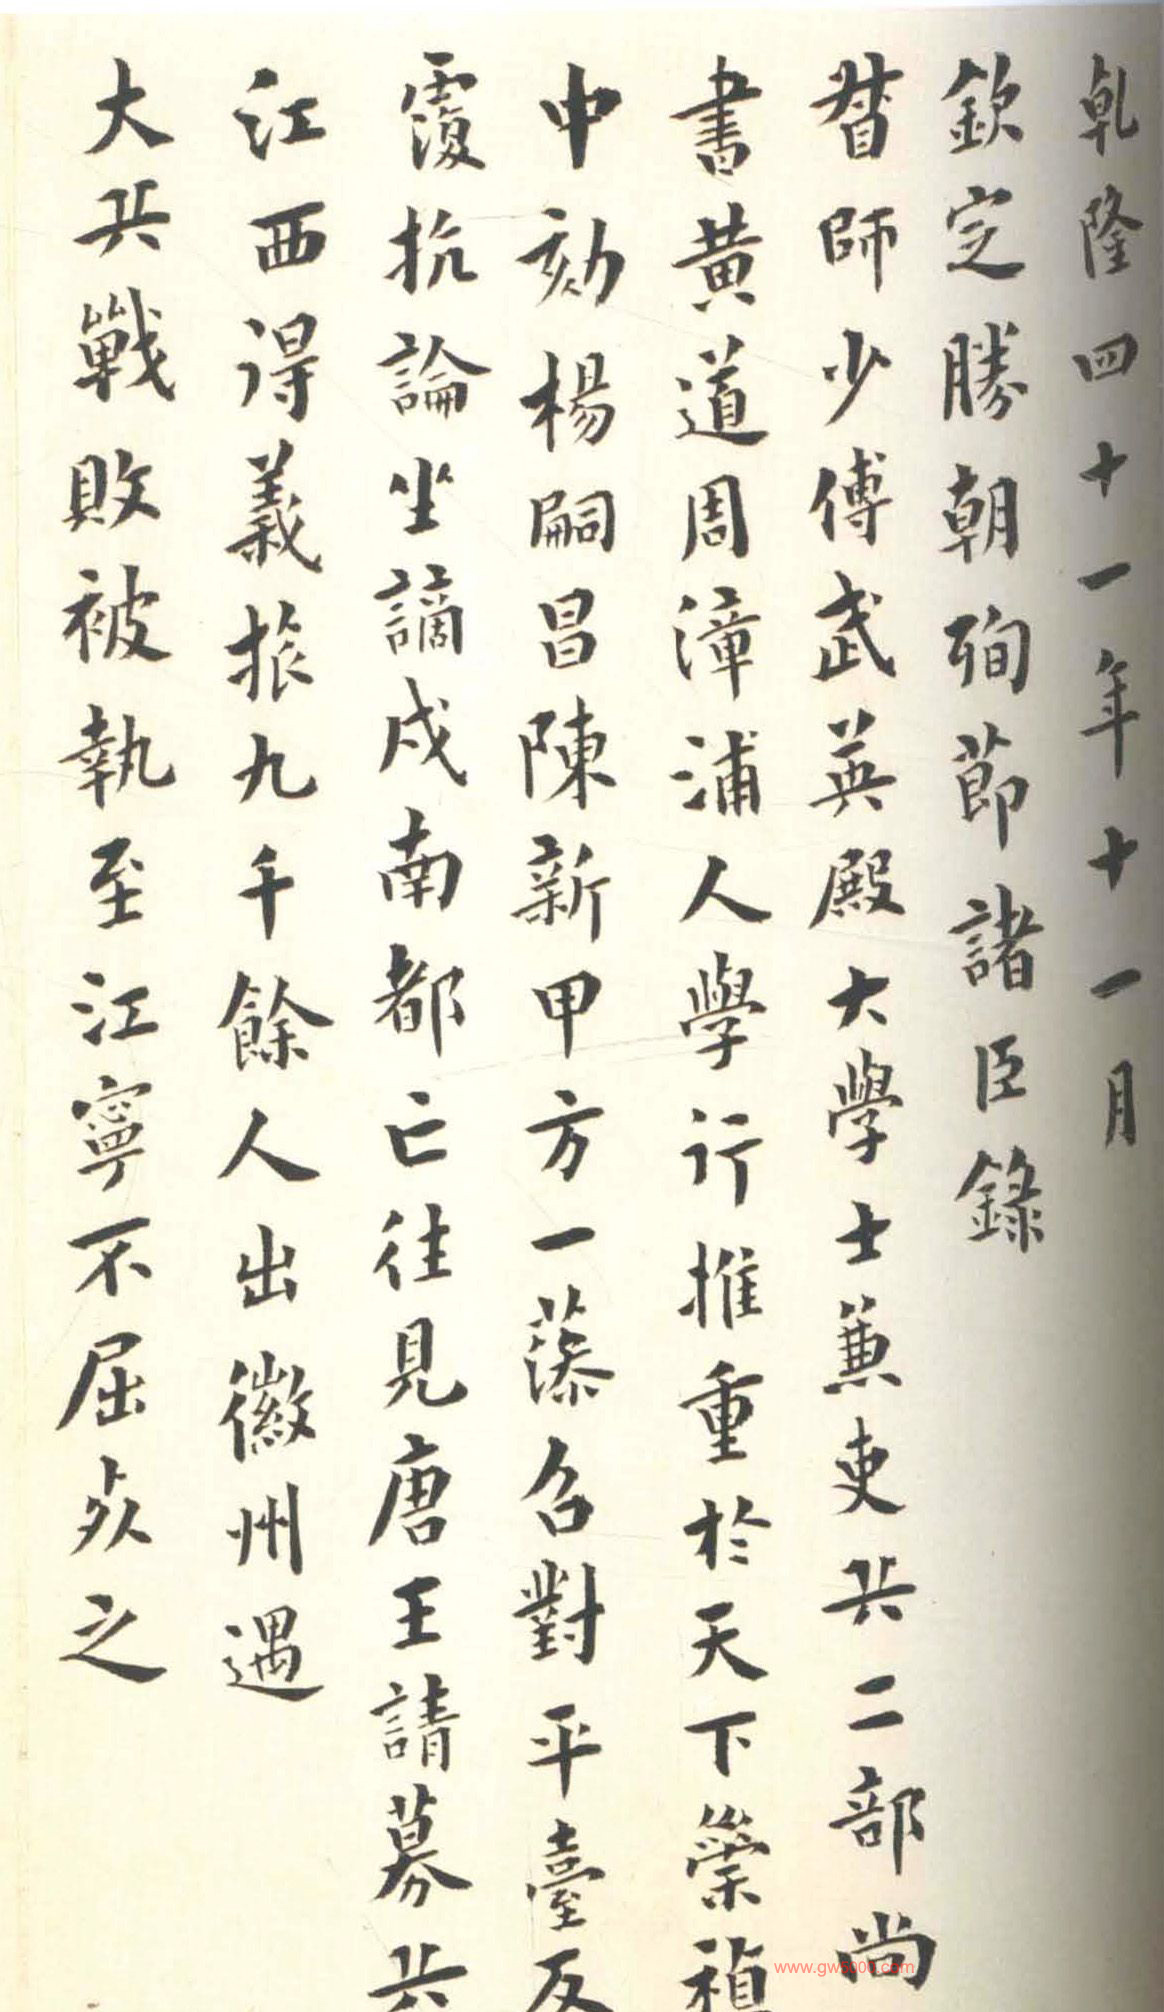 乾隆四十一年十一月
欽定勝朝殉節諸臣錄
督師少傅武英殿大學士兼吏兵二部尚
書黃道周漳浦人學行推重於天下崇禎
中劾楊嗣昌陳新甲方一藻召對平臺反
覆抗論坐謫戍南都亡往見唐王請募兵
江西得義旅九千餘人出徽州遇
大兵戰敗被執至江寧不屈死之
www.gw5000.com